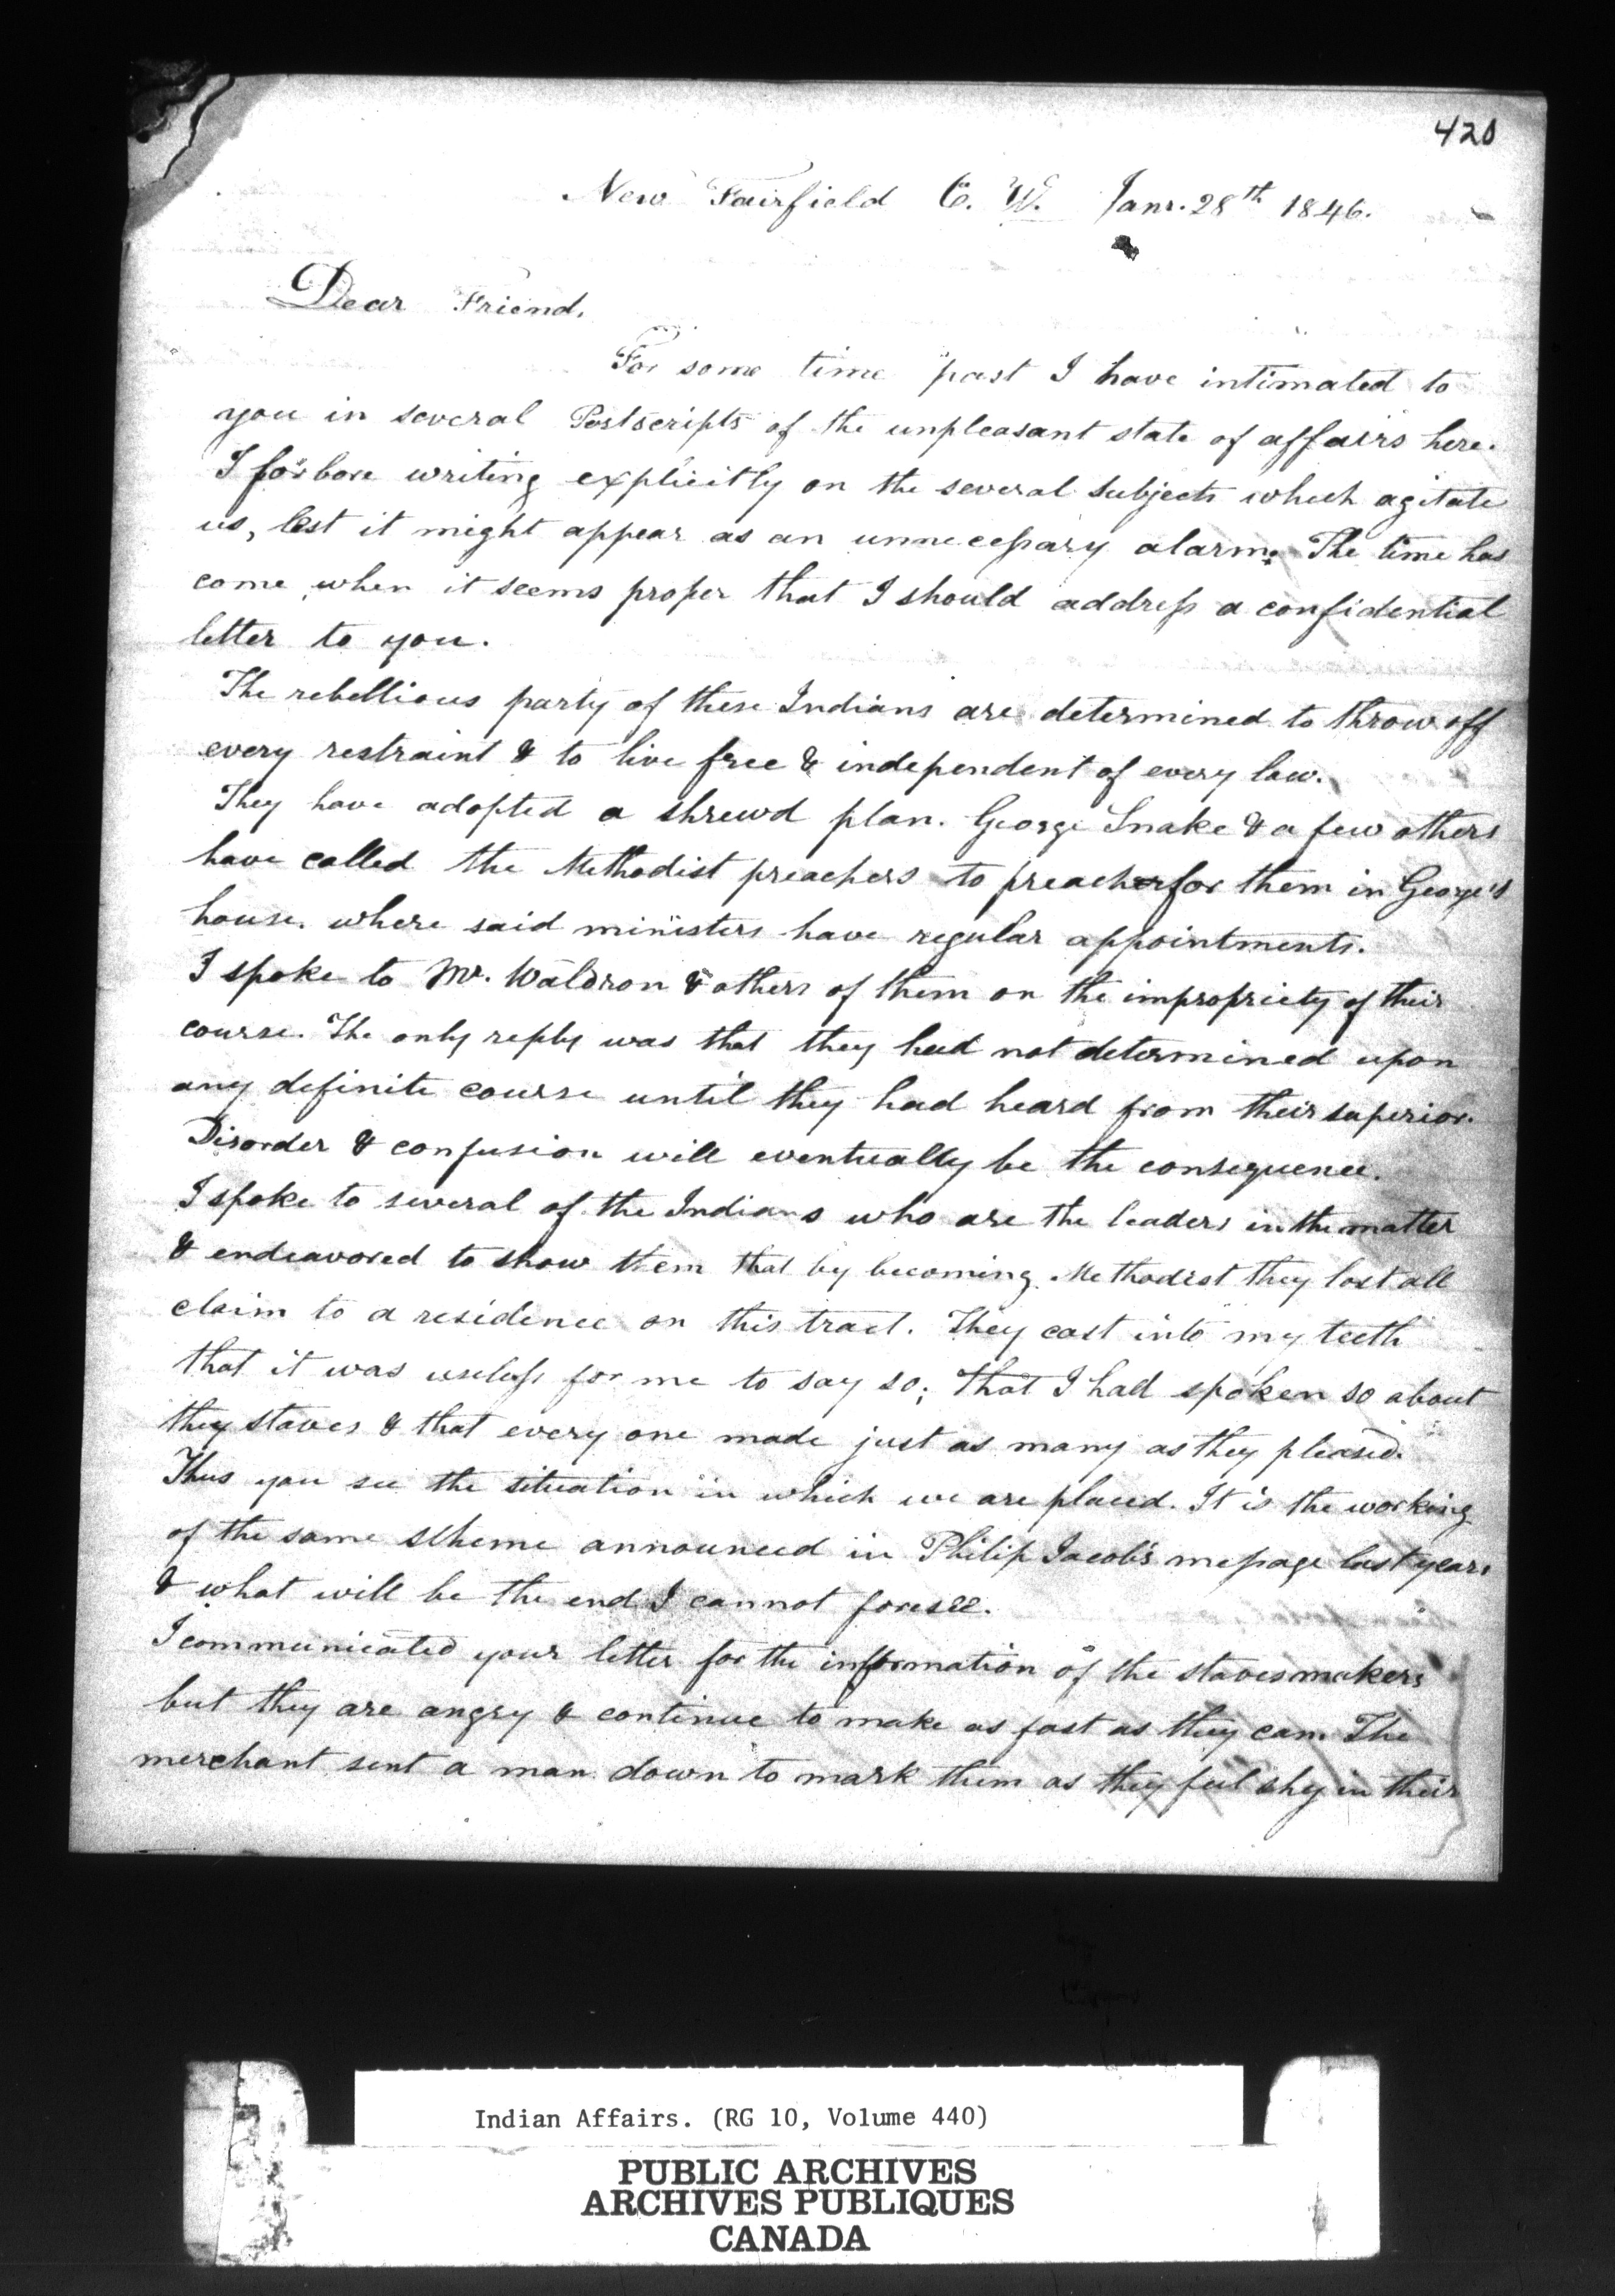 420
New Fairfield C. W. Janr. 28th 1846.
Dear Friend,
For some time past I have intimated to
you in several Postscripts of the unpleasant state of affairs here.
I forbore writing explicitly on the several subjects which agitate
us, lest it might appear as an unnecessary alarm. The time has
come when it seems proper that I should address a confidential
letter to you.
The rebellious party of these Indians are determined to throw off
every restraint & to live free & independent of every law.
They have adopted a shrewd plan. George Snake & a few others
have called the Methodist preachers to preach for them in George's
house. where said ministers have regular appointments.
I spoke to Mr. Waldron & others of them on the impropriety of their
course. The only reply was that they had not determined upon
any definite course until they had heard from their superior.
Disorder & confusion will eventually be the consequence.
I spoke to several of the Indians who are the leaders in the matter
& endeavored to show them that by becoming Methodist they lost all
claim to a residence on this tract. They cast into my teeth
that it was useless for me to say so; that I had spoken so about
they staves & that every one made just as many as they pleased.
Thus you see the situation in which we are placed. It is the working
of the same scheme announced in Philip Jacob's message last year,
& what will be the end I cannot foresee.
I communicated your letter for the information of the stavesmakers
but they are angry & continue to make as fast as they can. The
merchant sent a man down to mark them as they feel shy in their
Indian Affairs. (RG 10, Volume 440)
PUBLIC ARCHIVES
ARCHIVES PUBLIQUES
CANADA